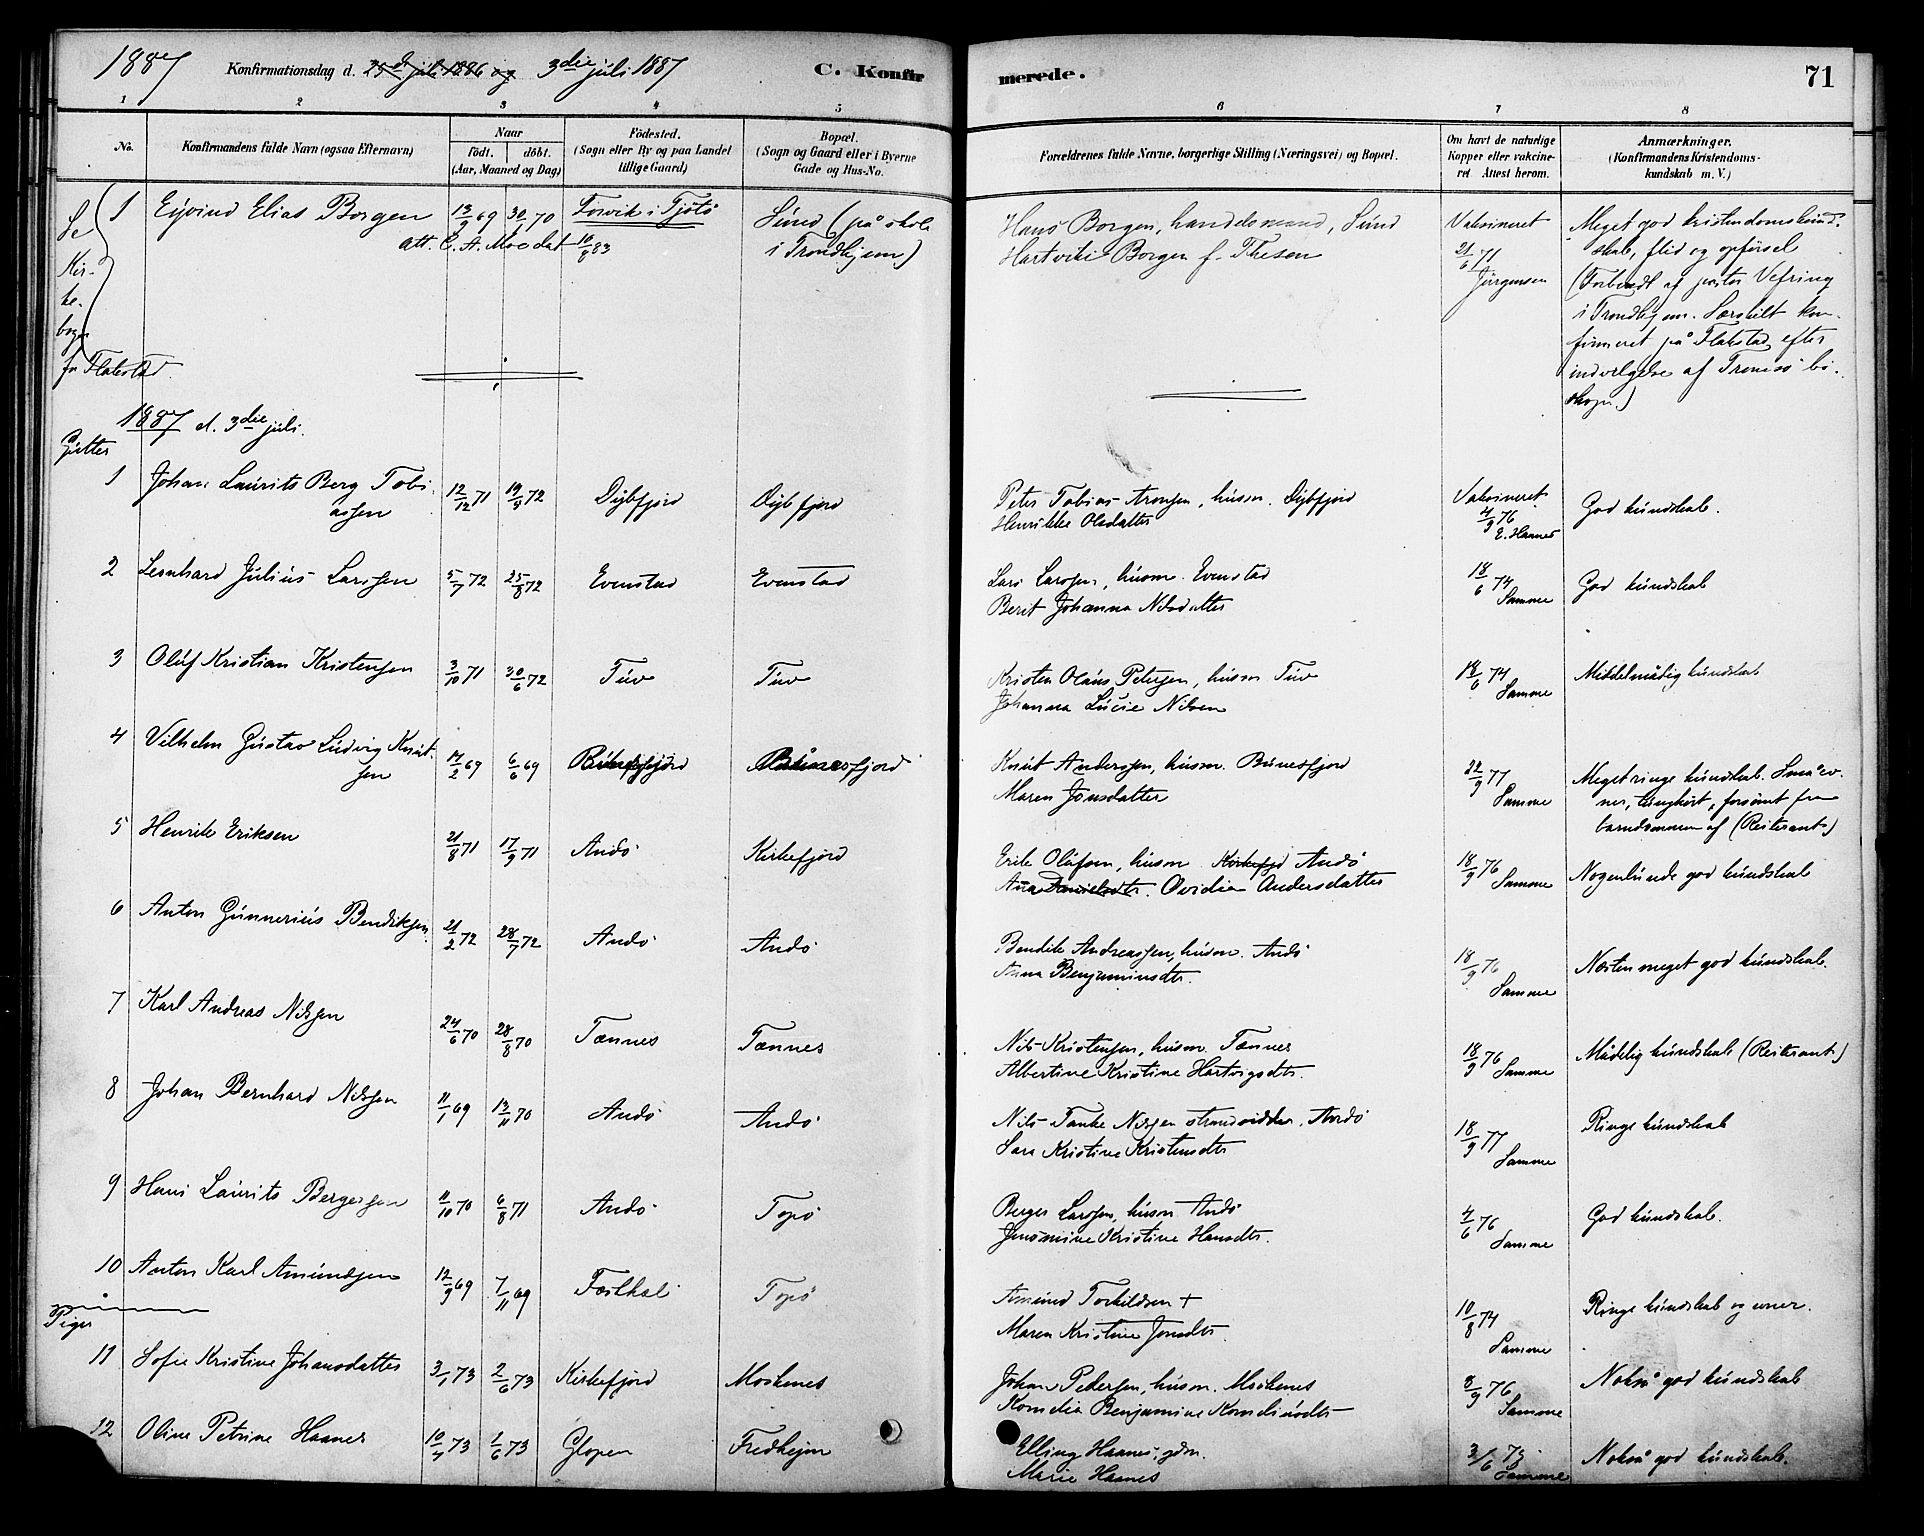 1887 Konfirmationsdag d. 25de juli 1886 og 3die juli 1887 C. Konfir merede. 71
1 2 3 4 5 6 7 8
No. Konfirmandens fulde Navn (ogsaa Efternavn) Naar födt. döbt. (Aar, Maaned og Dag) Födested. (Sogn eller By og paa Landet tillige Gaard) Bopæl. (Sogn og Gaard eller i Byerne Gade og Hus-No. Forældrenes fulde Navne, borgerlige Stilling (Næringsvei) og Bopæl. Om havt de naturlige Kopper eller vakcineret Attest herom. Anmærkninger. (Konfirmandens Kristendomskundskab m. V.)
Se Kirkebogen for Flakstad.
1 Eyvind Elias Borgen 13/9 69 30/ 70 Forvik i Tjøtø Sund (på skole Hans Borgen, handelsmand, Sund Vaksineret Meget god kristendomskund-
att. C. A. Moe dat 16/8 83 i Trondhjem) Hartvikke Borgen f. Thesen 21/6 71 skab, flid og opførsel
Jürgensen (Forberedt af pastor Vefring
i Trondhjem. Særskilt kon-
firmeret på Flakstad efter
indvilgelse af Tromsø bi-
skop.)
1887 d. 3die juli.
Gutter
1 Johan Laurits Berg Tobi- 12/12 71 19/8 72 Dybfjord Dybfjord Peter Tobias Aronsen, husm. Dybfjord Vaksineret God kundskab.
assen Henrikke Olsdatter 4/9 76 E. Haanes
2 Leonhard Julius Larssen 5/7 72 25/8 72 Evenstad Evenstad Lars Larssen, husm. Evenstad 18/6 74 God kundskab
Berit Johanna Nilsdatter Samme
3 Oluf Kristian Kristensen 3/10 71 30/6 72 Tuv Tuv Kristen Olaus Petersen, husm Tuv 18/6 74 Middelmådig kundskab
Johanna Lucie Nilsen Samme
4 Vilhelm Gustav Ludvig Knut- 17/2 69 6/6 69 Bunesfjord Bunesfjord Knut Anderssen, husm. Bunesfjord 22/9 77 Meget ringe kundskab. Små ev-
sen Maren Jonsdatter Samme ner, tunghørt, forsømt fra
barndommen af (Reiterant)
5 Henrik Eriksen 21/8 71 17/9 71 Andø Kirkefjord Erik Olufsen, husm Kirkefjd Andø 18/9 76 Nogenlunde god kundskab
Ana Danielsdtr. Ovidia Andersdatter Samme
6 Anton Gunnerius Bendiksen. 21/2 72 28/7 72 Andø Andø Bendik Andreassen, husm. Andø 18/9 76 Næsten meget god kundskab.
Anna Benjaminsdtr. Samme
7 Karl Andreas Nilssen 24/6 70 28/8 70 Tennes Tennes Nils Kristensen, husm. Tennes 18/9 76 Mådelig kundskab (Reiterant)
Albertine Kristine Hartvigsdtr. Samme
8 Johan Bernhard Nilssen 11/1 69 13/11 70 Andø Andø Nils Tanke Nilssen strandsidder, Andø 18/9 77 Ringe kundskab
Sara Kristine Kristensdtr Samme
9 Hans Laurits Bergersen 11/10 70 6/8 71 Andø Topø Berger Larssen, husm Andø 4/6 76 God kundskab.
Jensmine Kristine Hansdtr. Samme
10 Anton Karl Amundsen 12/9 69 7/11 69 Topø Amund Torkildsen + 10/8 74 Ringe kundskab og evner.
Maren Kristine Jonsdtr. Samme
Piger
11 Sofie Kristine Johansdatter 3/1 73 2/6 73 Kirkefjord Moskenes Johan Pedersen, husm. Moskenes 8/9 76 Nokså god kundskab
Kornelia Benjamine Korneliusdtr Samme
12 Oline Petrine Haanes 10/4 73 1/6 73 Glopen Fredheim Elling Haanes, gdm. 3/6 75 Nokså god kundskab.
Marie Haanes Samme